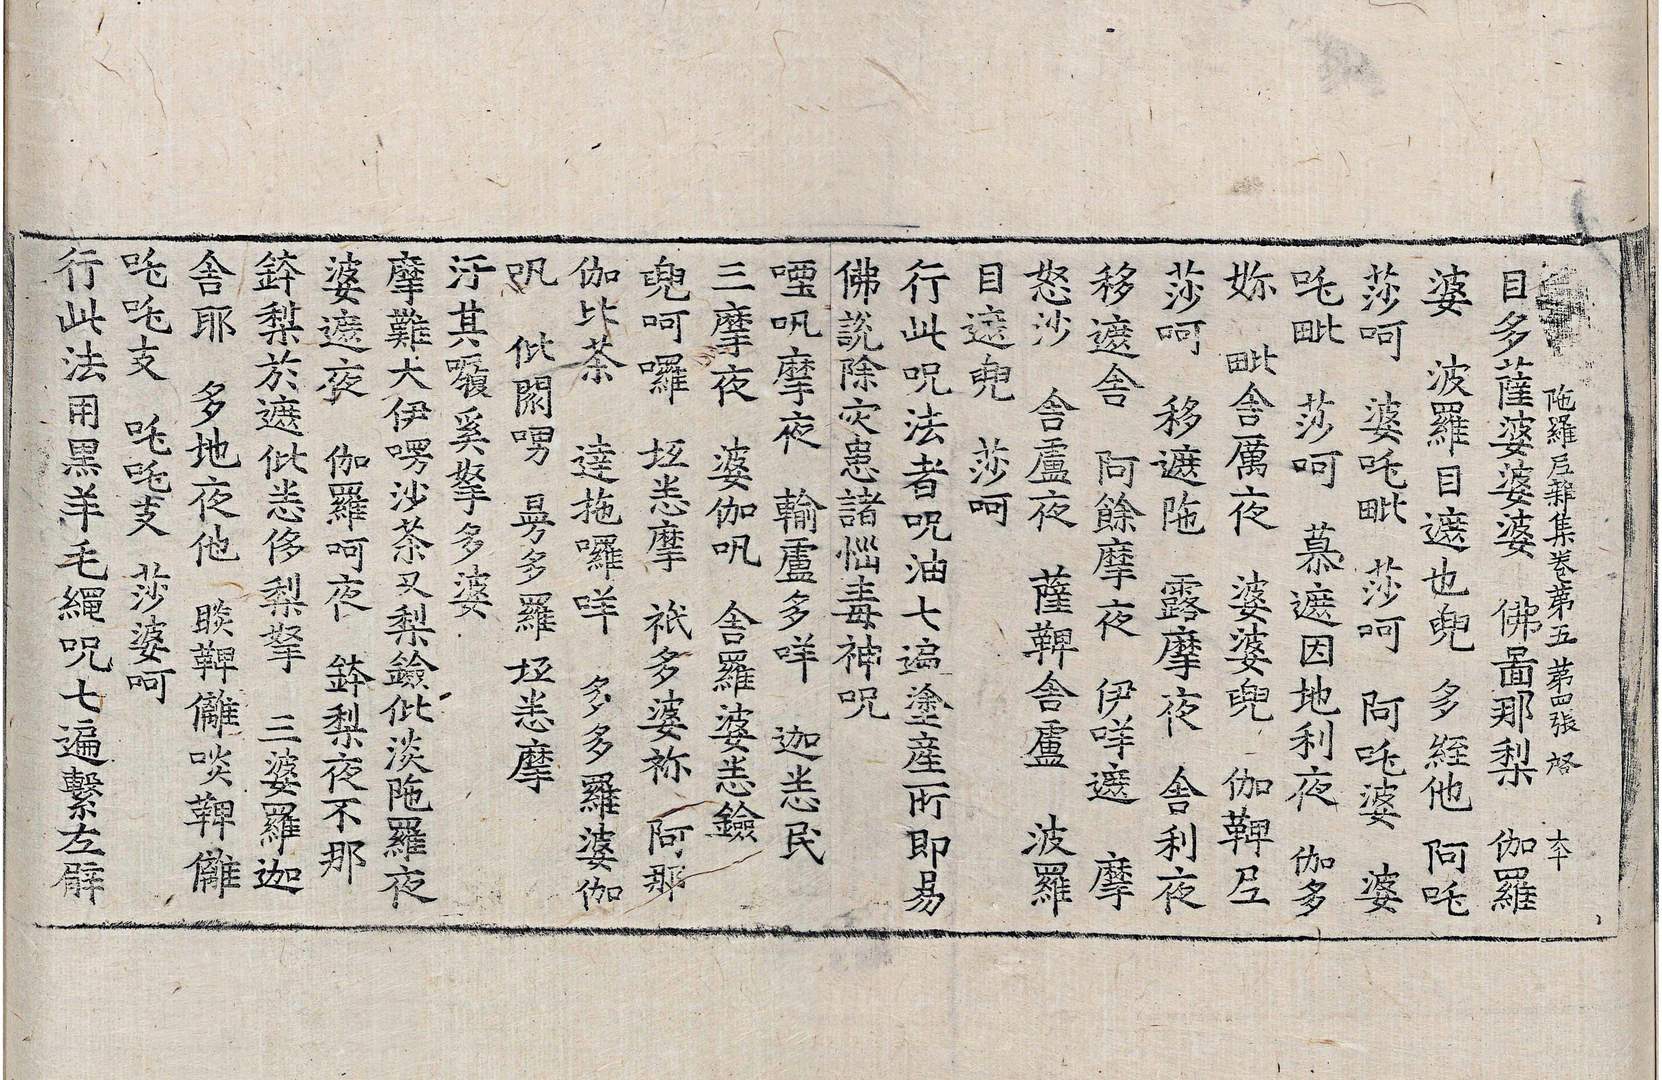 陁羅尼雜集卷第五 第四張 㧞 大卞
目多薩婆婆婆 佛啚那梨 伽羅
婆 波羅目遮也㲯 多絰他 阿吒
莎呵 婆吒毗 莎呵 阿吒婆 婆
吒毗 莎呵 慕遮因地利夜 伽多
妳 毗舍厲夜 婆婆㲯 伽鞞尼
莎呵 移遮陁 露摩夜 舍利夜
移遮舍 阿餘摩夜 伊咩遮 摩
怒沙 舍盧夜 薩鞞舍盧 波羅
目遮㲯 莎呵
行此呪法者呪油七遍塗産所即易
佛說除灾患諸惱毒神呪
㘕㕧摩夜 輸盧多咩 迦恙民
三摩夜 婆伽㕧 舍羅婆恙鐱
㲯呵囉 坘恙摩 祇多婆祢 阿那
伽比荼 達拖囉咩 多多羅婆伽
㕧 㑸閦㗛 昮多羅 坘恙摩
汙其㘑奚拏多婆
摩難大伊㗁沙荼叉梨鐱㑸淡陁羅夜
婆遮夜 伽羅呵夜 鉢梨夜不那
鉢梨於遮㑸恙侈梨拏 三婆羅迦
舍耶 多地夜他 睒鞞儺啖鞞儺
吒吒支 吒吒支 莎婆呵
行此法用黑羊毛繩呪七遍繫左臂